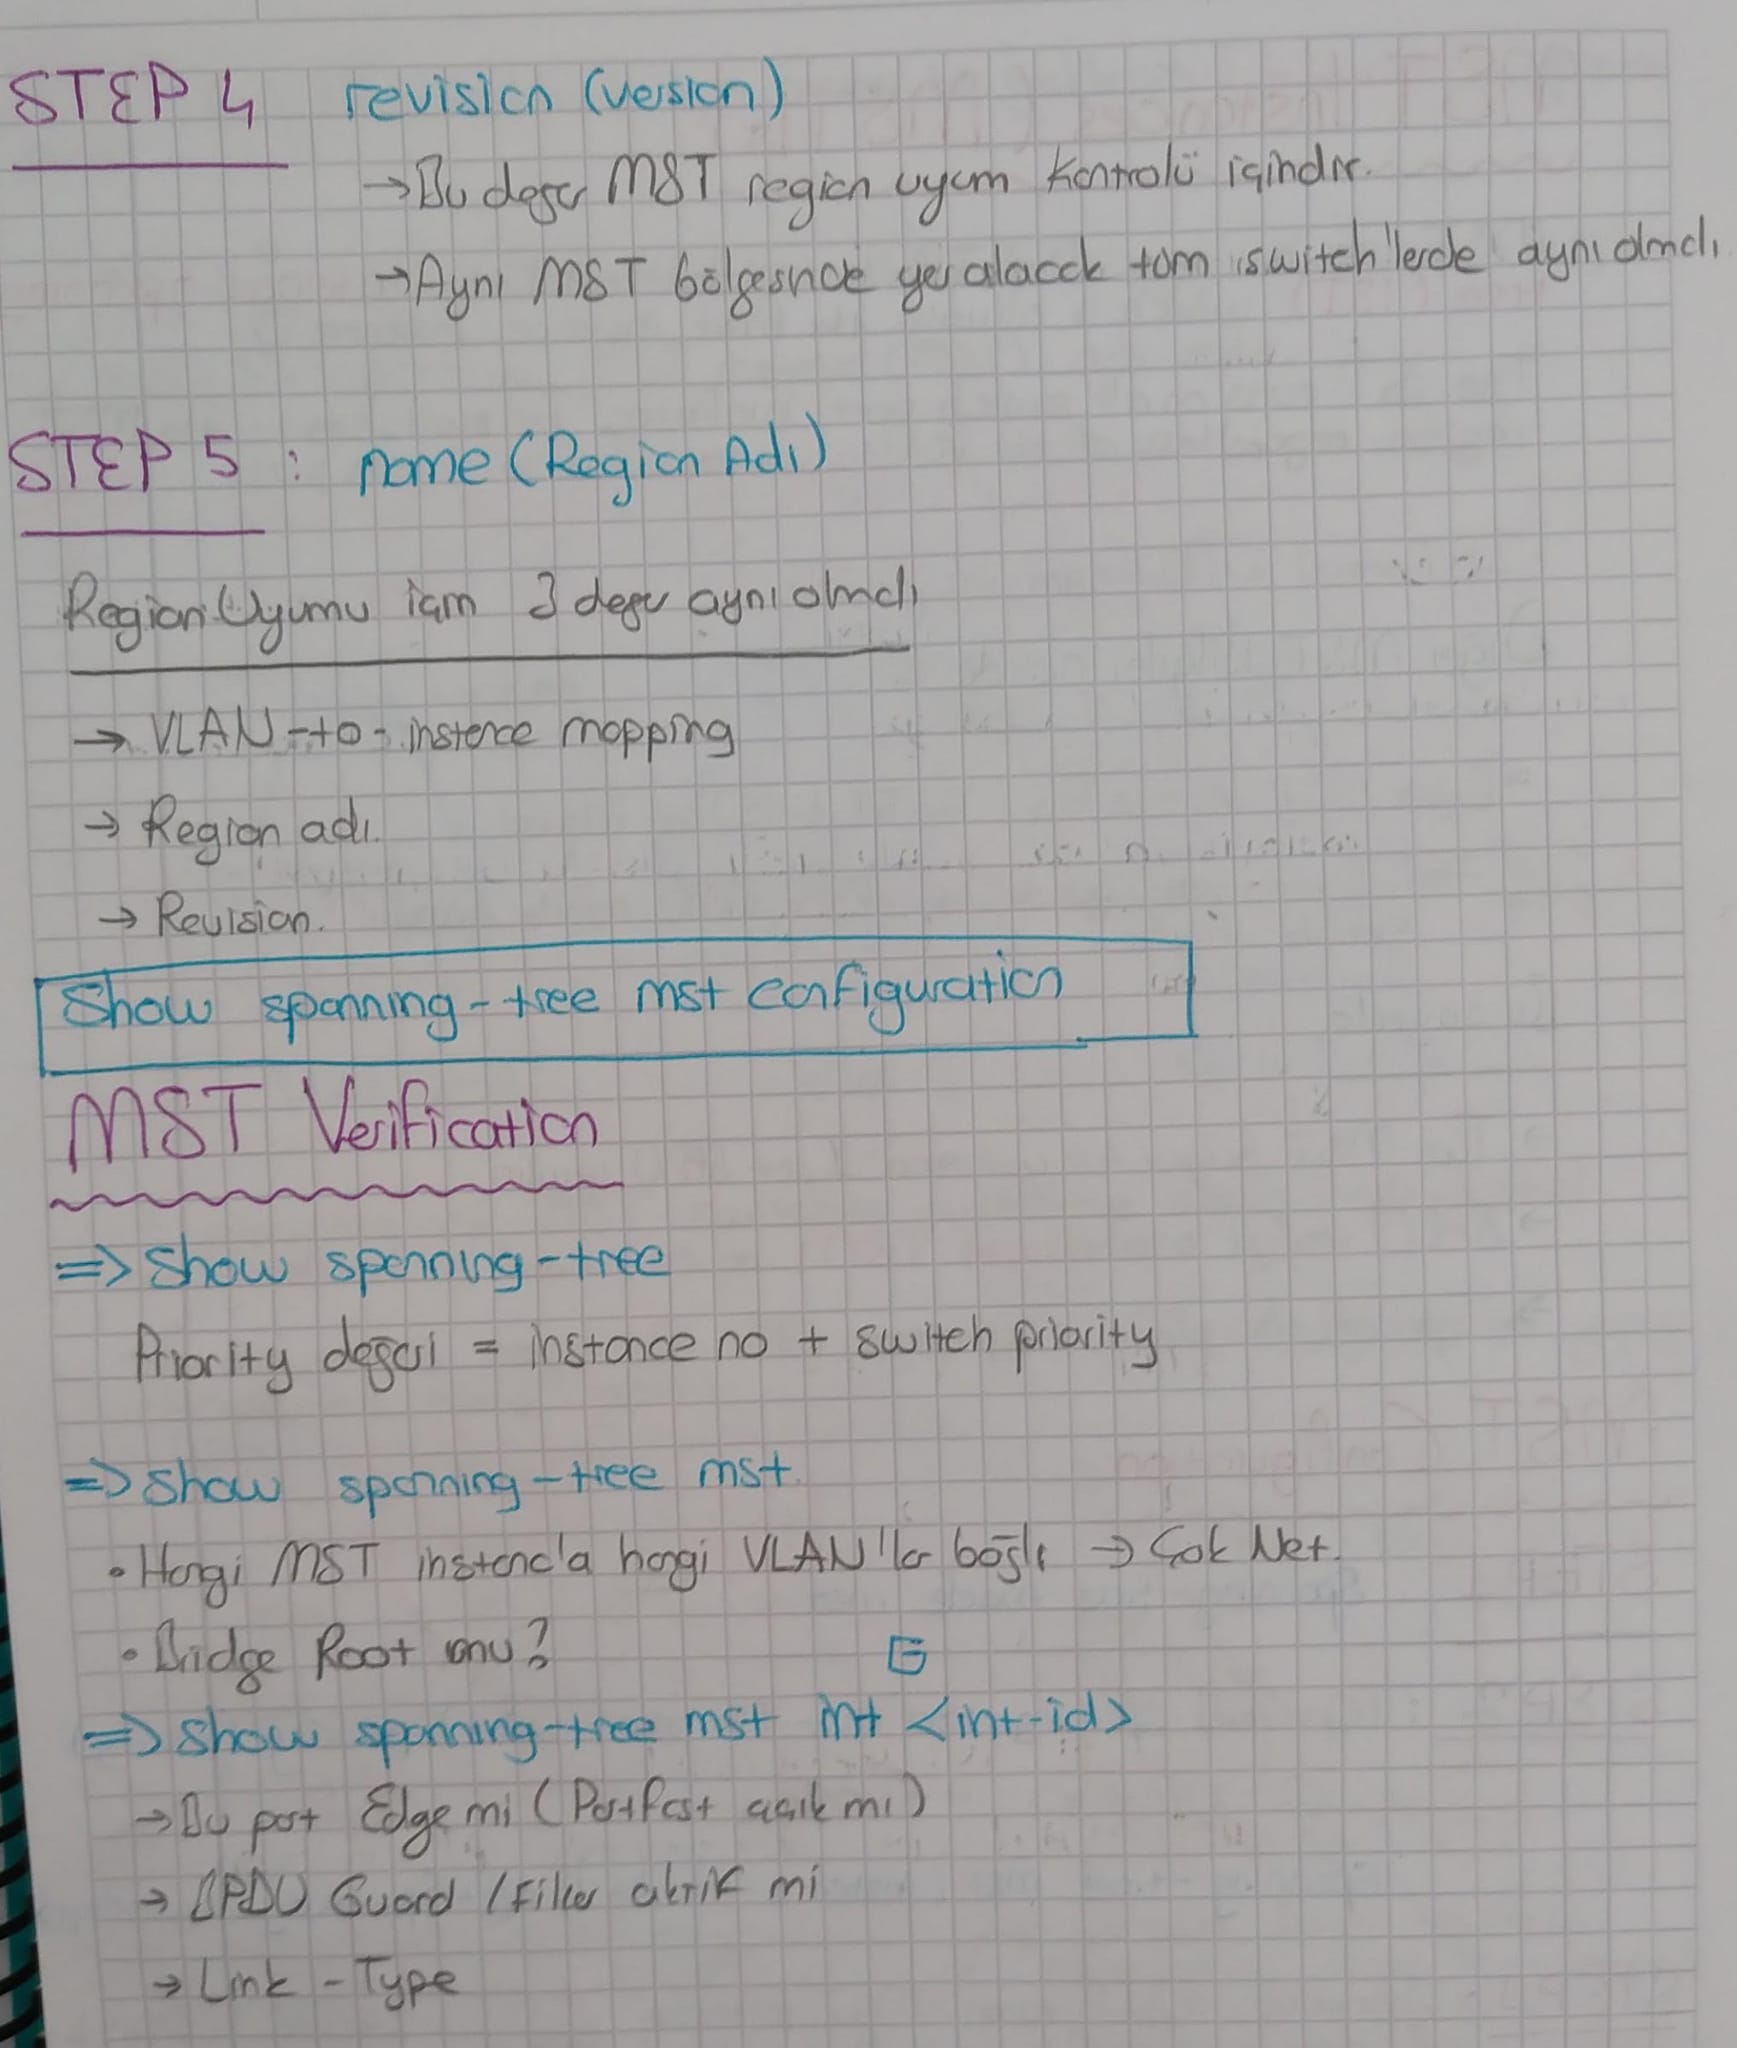 STEP 4 revision (version)
→ Bu değer MST region uyum kontrolü içindir.
→ Aynı MST bölgesinde yer alacak tüm switch'lerde aynı olmalı
STEP 5 : name (Region Adı)
Region Uyumu için 3 değer aynı olmalı
→ VLAN-to-instance mapping
→ Region adı.
→ Revision.
Show spanning-tree mst configuration
MST Verification
=> Show spanning-tree
Priority değeri = instance no + switch priority
=> Show spanning-tree mst.
• Hangi MST instanc'a hangi VLAN'lar bağlı → Çok Net.
• Bridge Root mu?
=> Show spanning-tree mst int <int-id>
→ Bu port Edge mi (PortFast açık mı)
→ BPDU Guard / Filter aktif mi
→ Link-Type